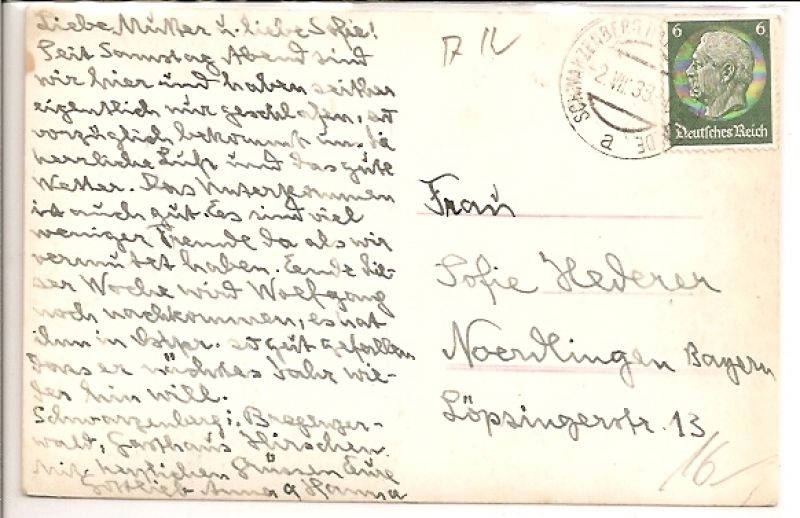 Liebe Mutter u. liebe Sofie!
Seit Samstag Abend sind
wir hier und haben seither
eigentlich nur geschlafen, so
vorzüglich bekommt uns die
herrliche Luft und das gute
Wetter. Das Unterkommen
ist auch gut. Es sind viel
weniger Fremde da als wir
vermutet haben. Ende die-
ser Woche wird Wolfgang
noch nachkommen, es hat
ihm in Ostpr. so gut gefallen
dass er nächstes Jahr wie-
der hin will.
Schwarzenberg i. Bregenzer-
wald, Gasthaus Hirschen.
Mit herzlichen Grüssen Eure
Gottlieb Anna & Hanna
SCHWARZENBERG
2. VIII. 38
a
6 6
Deutsches Reich
Frau
Sofie Hederer
Noerdlingen Bayern
Löpsingerstr. 13
16